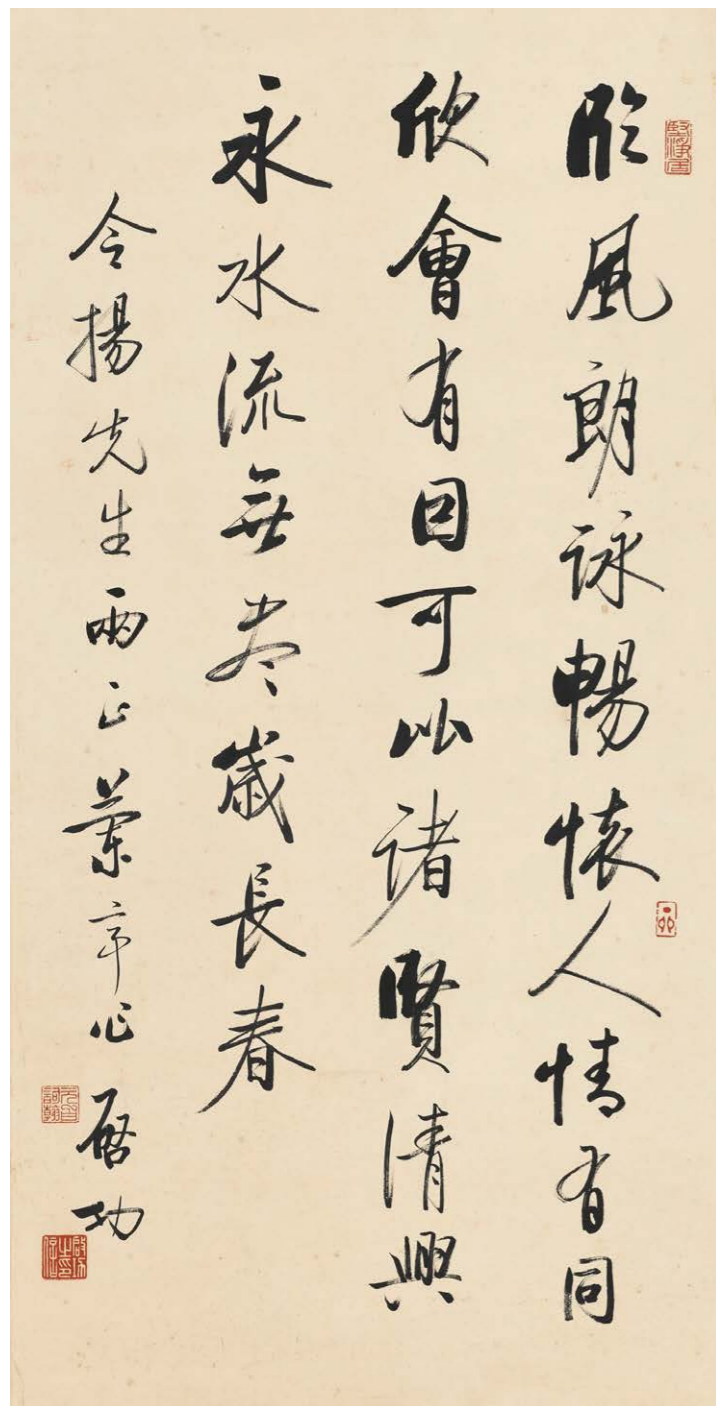 堅淨居
臨風朗詠暢懷人情有同
欣會有因可以諸賢清興
永水流無盡歲長春
令揚先生兩正蘭亭作啟功